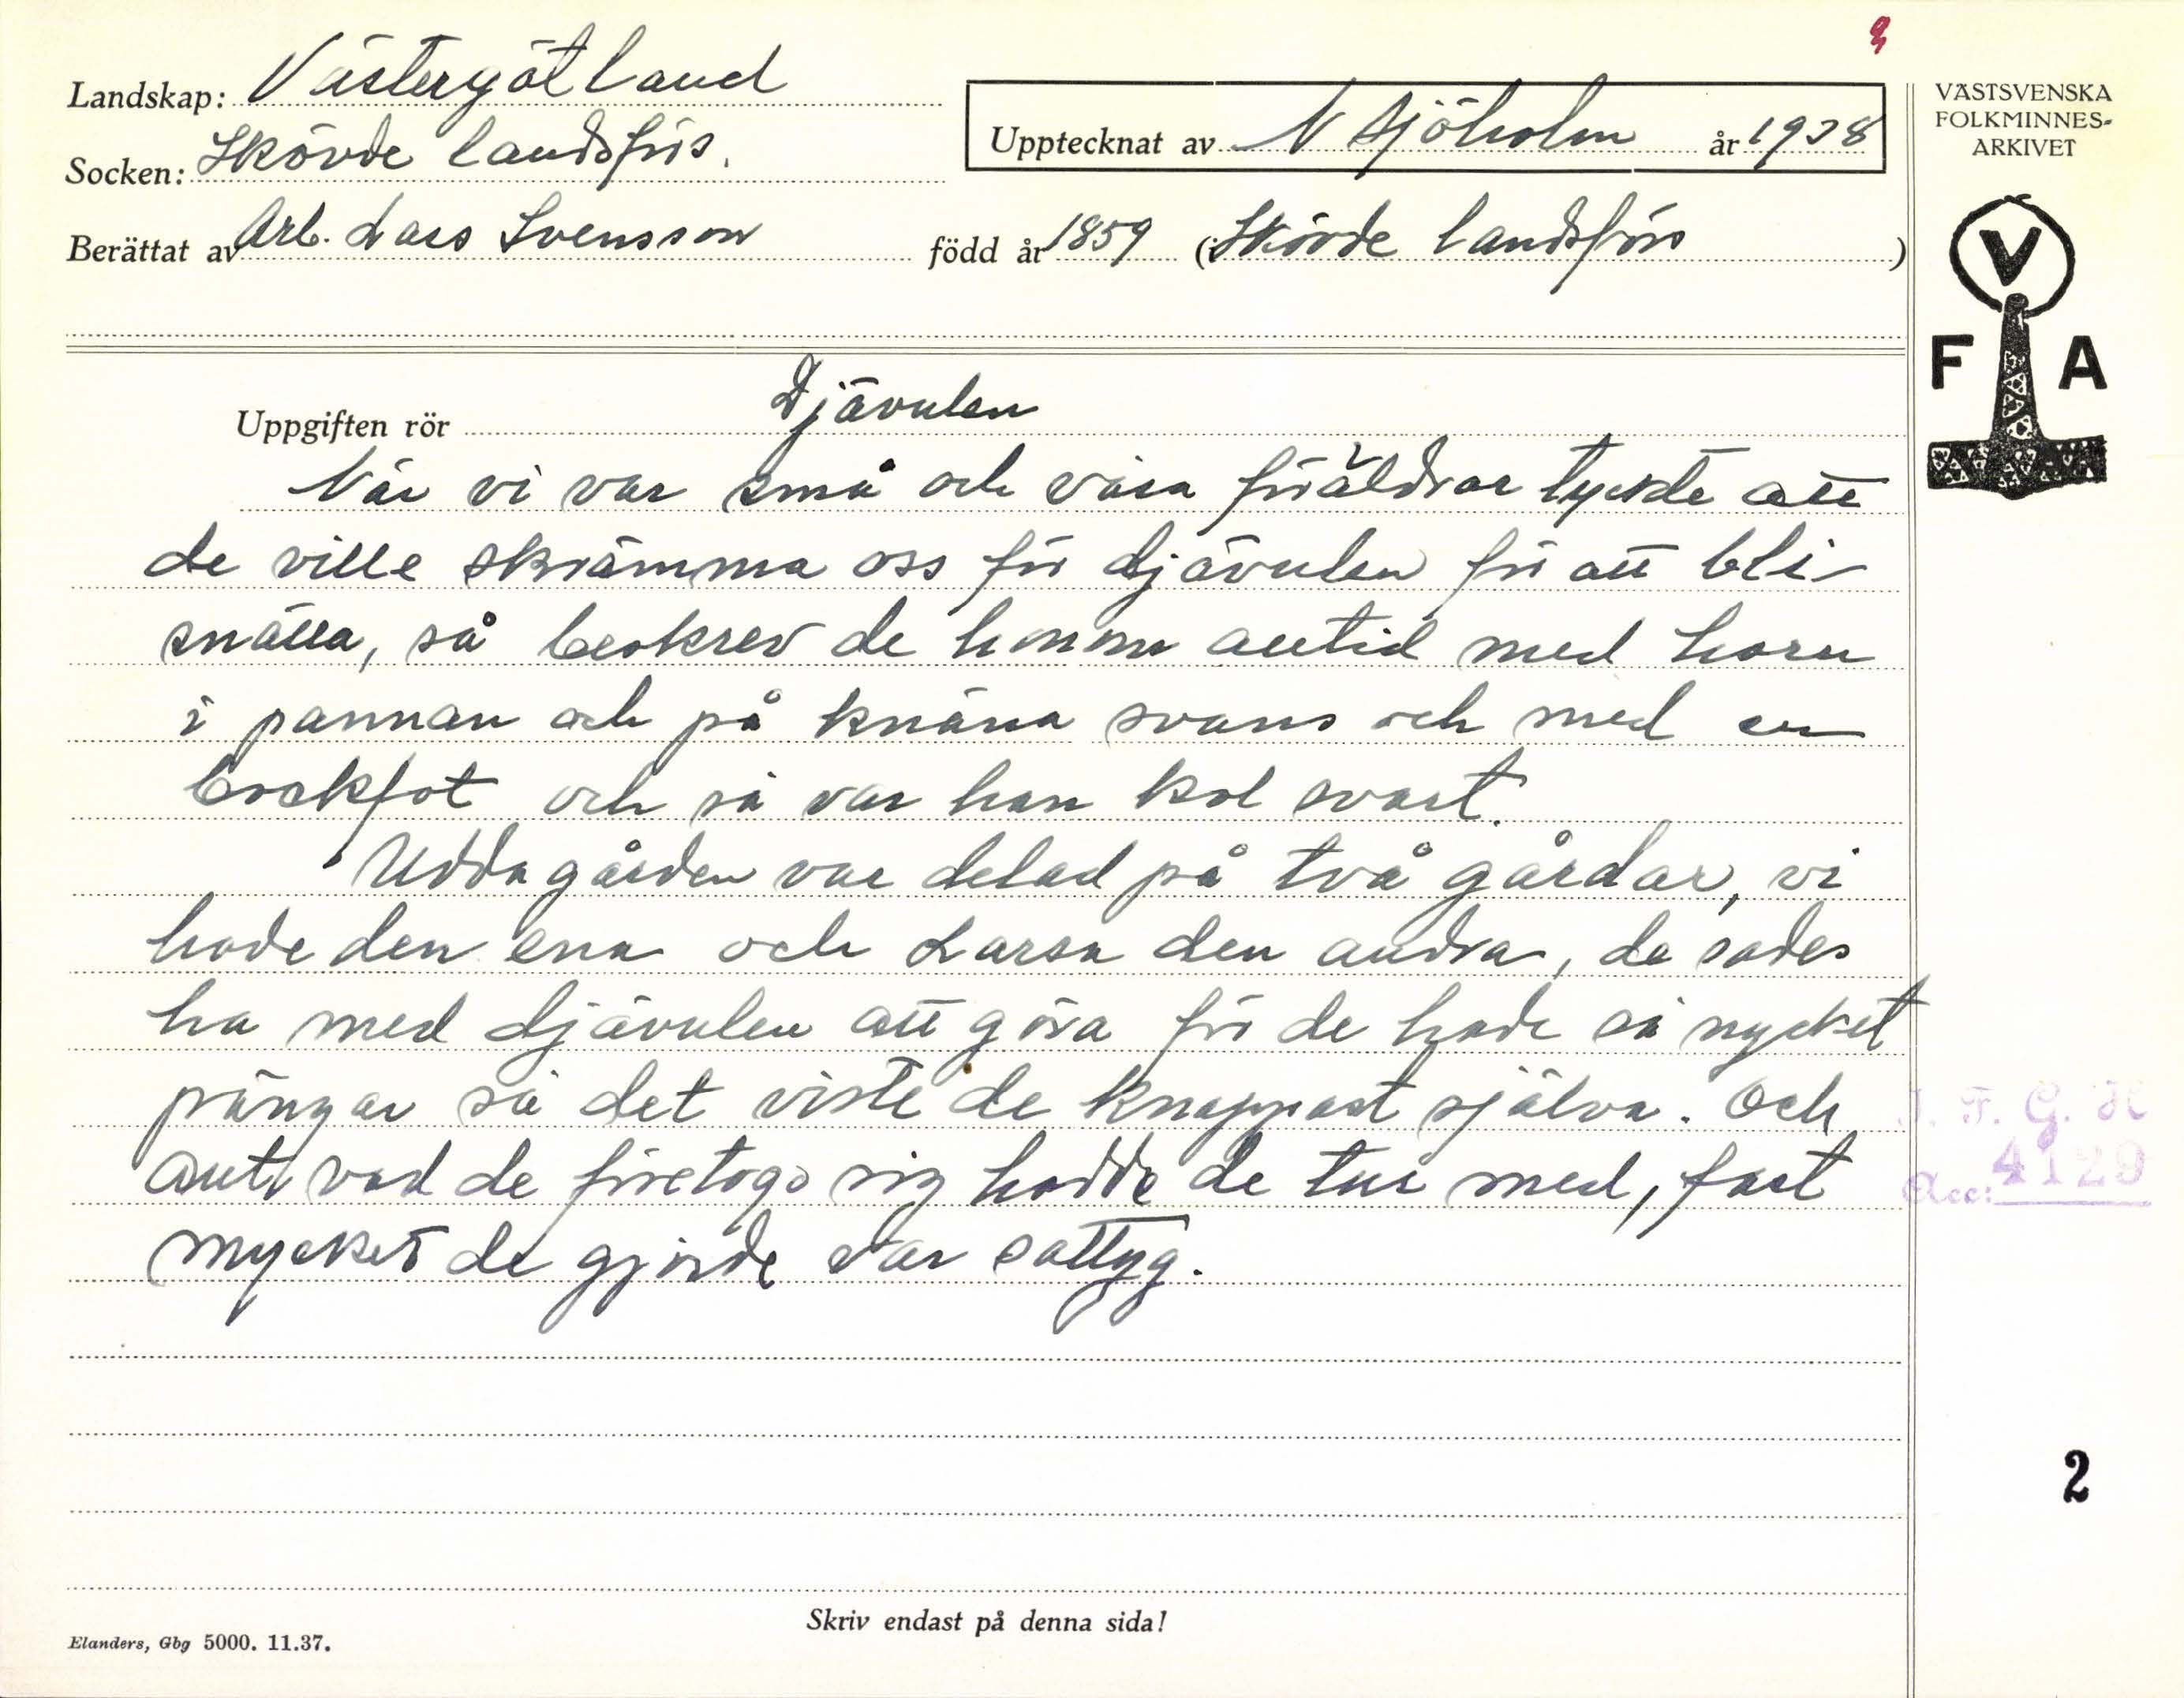 Landskap: Västergötland
Socken: Skövde landsförs.
Upptecknat av N Sjöholm år 1938
Berättat av Arb. Lars Svensson född år 1859 (i Skövde landsförs)
VÄSTSVENSKA
FOLKMINNES-
ARKIVET
V
F A
Uppgiften rör Djävulen
När vi var små och våra föräldrar tyckte att
de ville skrämma oss för djävulen för att bli
snälla, så beskrev de honom alltid med horn
i pannan och på knäna svans och med en
bockfot och så var han kol svart.
Uddagården var delad på två gårdar, vi
hade den ena och Larsa den andra, de sades
ha med djävulen att göra för de hade så mycket
pängar så det viste de knappast själva. Och
ant. vad de företogo sig hadde de tur med, fast
mycket de gjorde var sattyg.
I. F. G. H
Acc: 4129
2
Skriv endast på denna sida!
Elanders, Gbg 5000. 11.37.